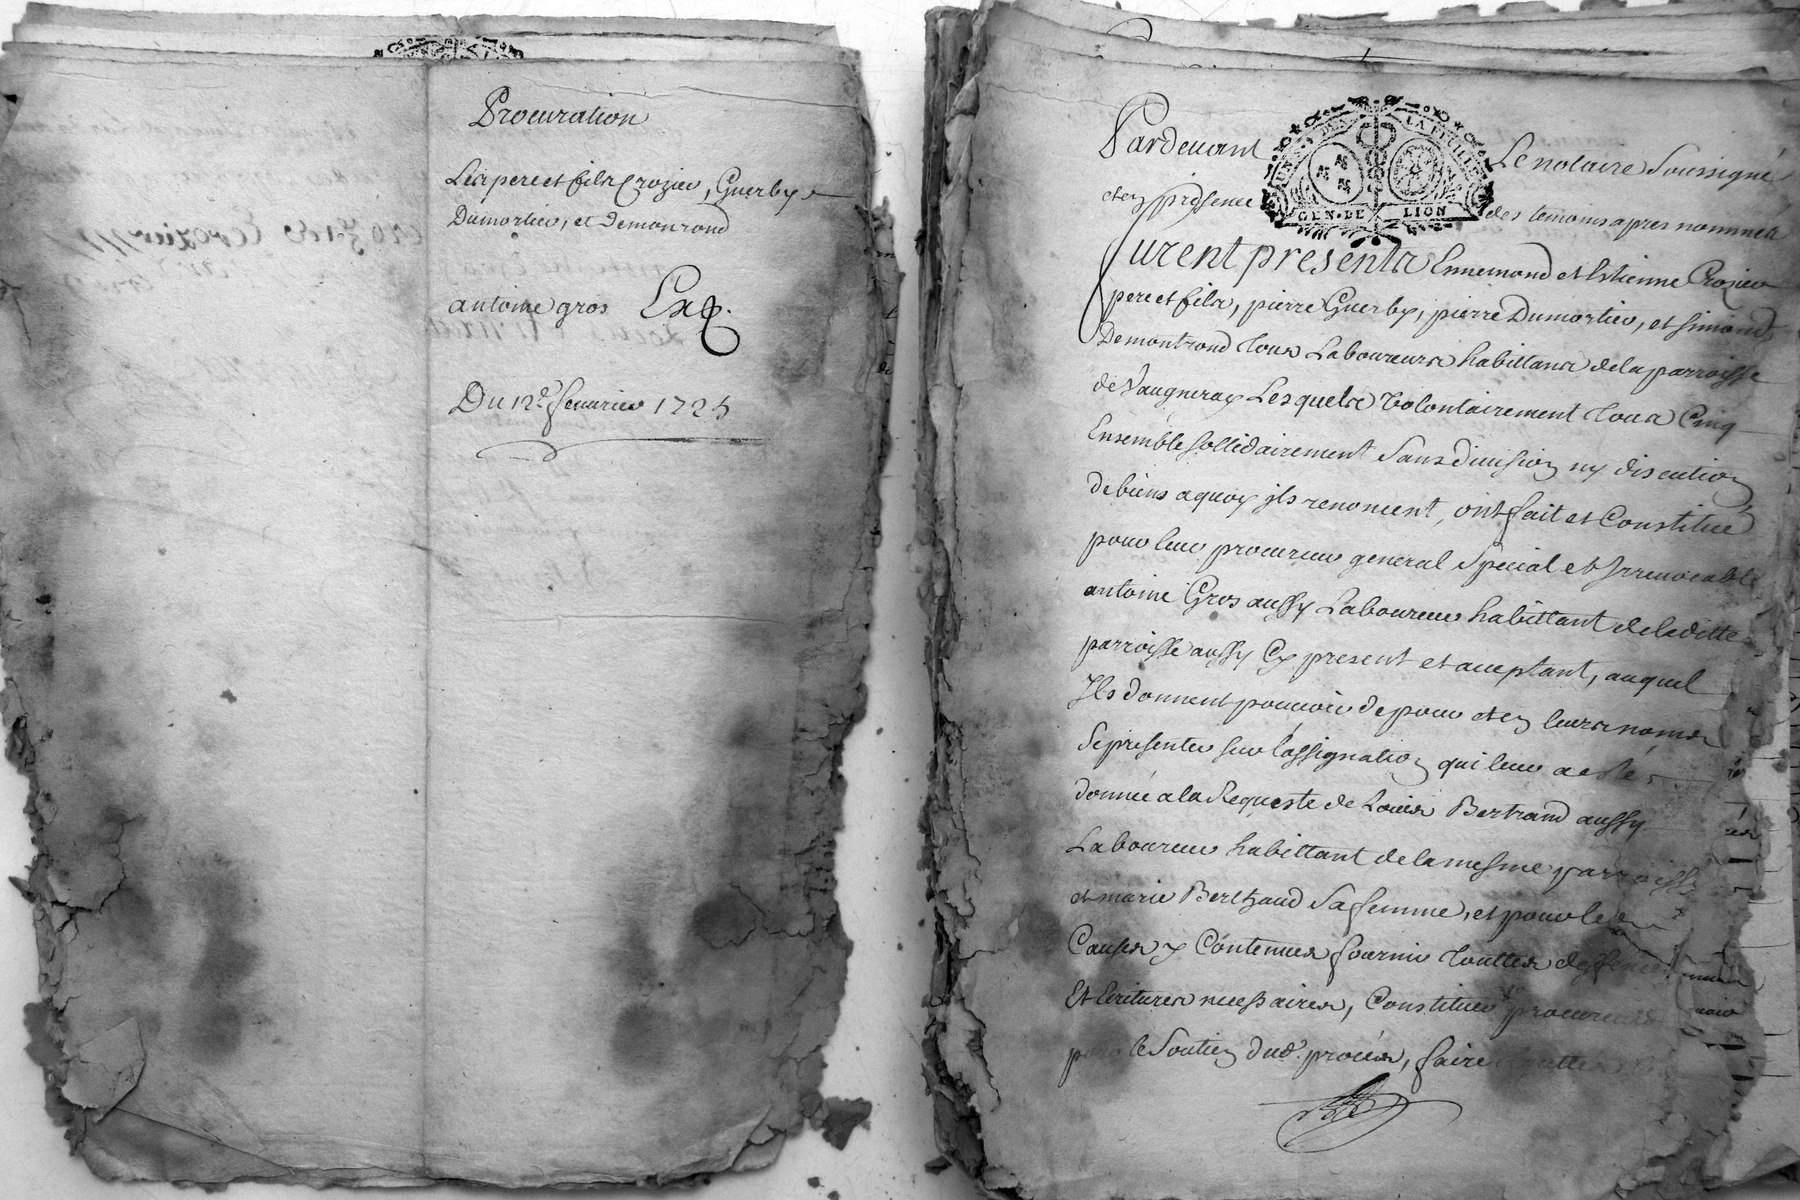 Procuration
Les pere et fils Crozier, Guerby
Dumortier, et Demontrond
antoine gros Exp.
Du 12e. feuvrier 1725
Pardevant Le notaire Soussigné
et en presence des temoins apres nommes
GEN. DE LION
furent presents Ennemond et Estienne Crozier
pere et fils, pierre Guerby, pierre Dumortier, et simond
Demontrond tous Laboureurs habittants de la parroisse
de Vaugneray Lesquels volontairement tous Cinq
Ensemble sollidairement Sans division ny discution
de biens a quoy ils renoncent, ont fait et Constitué
pour leur procureur general Special et Irrevocable
antoine Gros aussy Laboureur habittant de laditte
parroisse aussy Cy present et acceptant, auquel
Ils donnent pouvoir de pour et en leurs noms
Se presenter sur l'assignation qui leur a esté
donnée a la Requeste de Louis Bertrand aussy
Laboureur habittant de la mesme parroisse
et marie Berthaud Sa femme, et pour les
Causes y Contenues fournir touttes deffences
Et Ecritures necessaires, Constituer procureur
pour le Soutien dud. procés, faire